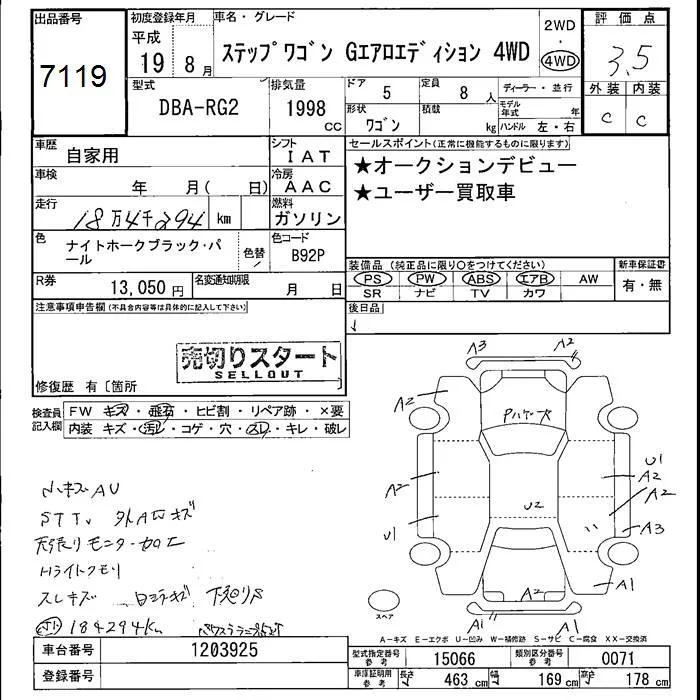 出品番号
7119
初度登録年月
平成
19 8月
車名・グレード
ステップワゴン Gエアロエディション 4WD
2WD
・
4WD
評価点
3.5
外装 内装
C C
型式
DBA-RG2
排気量
1998
CC
ドア
5
定員
8 人
形状
ワゴン
積載
kg
ディーラー・並行
モデル年式 年
ハンドル 左・右
車歴
自家用
シフト
IAT
車検
年 月( 日)
冷房
AAC
走行
18万4千294 km
燃料
ガソリン
色
ナイトホークブラック・パール
色替
色コード
B92P
R券
13,050円
名変通知期限
月 日
セールスポイント(正常に機能するものに限ります)
★オークションデビュー
★ユーザー買取車
装備品(純正品に限り○をつけてください)
PS PW ABS エアB AW
SR ナビ TV カワ
新車保証書
有・無
後日品
注意事項申告欄(不具合内容等は具体的に記入して下さい)
売切りスタート
SELLOUT
修復歴 有〔箇所
検査員記入欄
FW キズ・飛石・ヒビ割・リペア跡・×要
内装 キズ・汚レ・コゲ・穴・スレ・キレ・破レ
小キズAU
天張りモニター加工
Hライトクモリ
スレキズ
下廻りS
184294km
A3 A2
A2
A2
U1
U2
U1
A2
A2
A3
A1
A2
A1 A1
スペア
A-キズ E-エクボ U-凹み W-補修跡 S-サビ C-腐食 XX-交換済
車台番号
1203925
登録番号
型式指定番号
参考
15066
類別区分番号
参考
0071
車庫証明用
参考
長さ 463 cm 幅 169 cm 高さ 178 cm